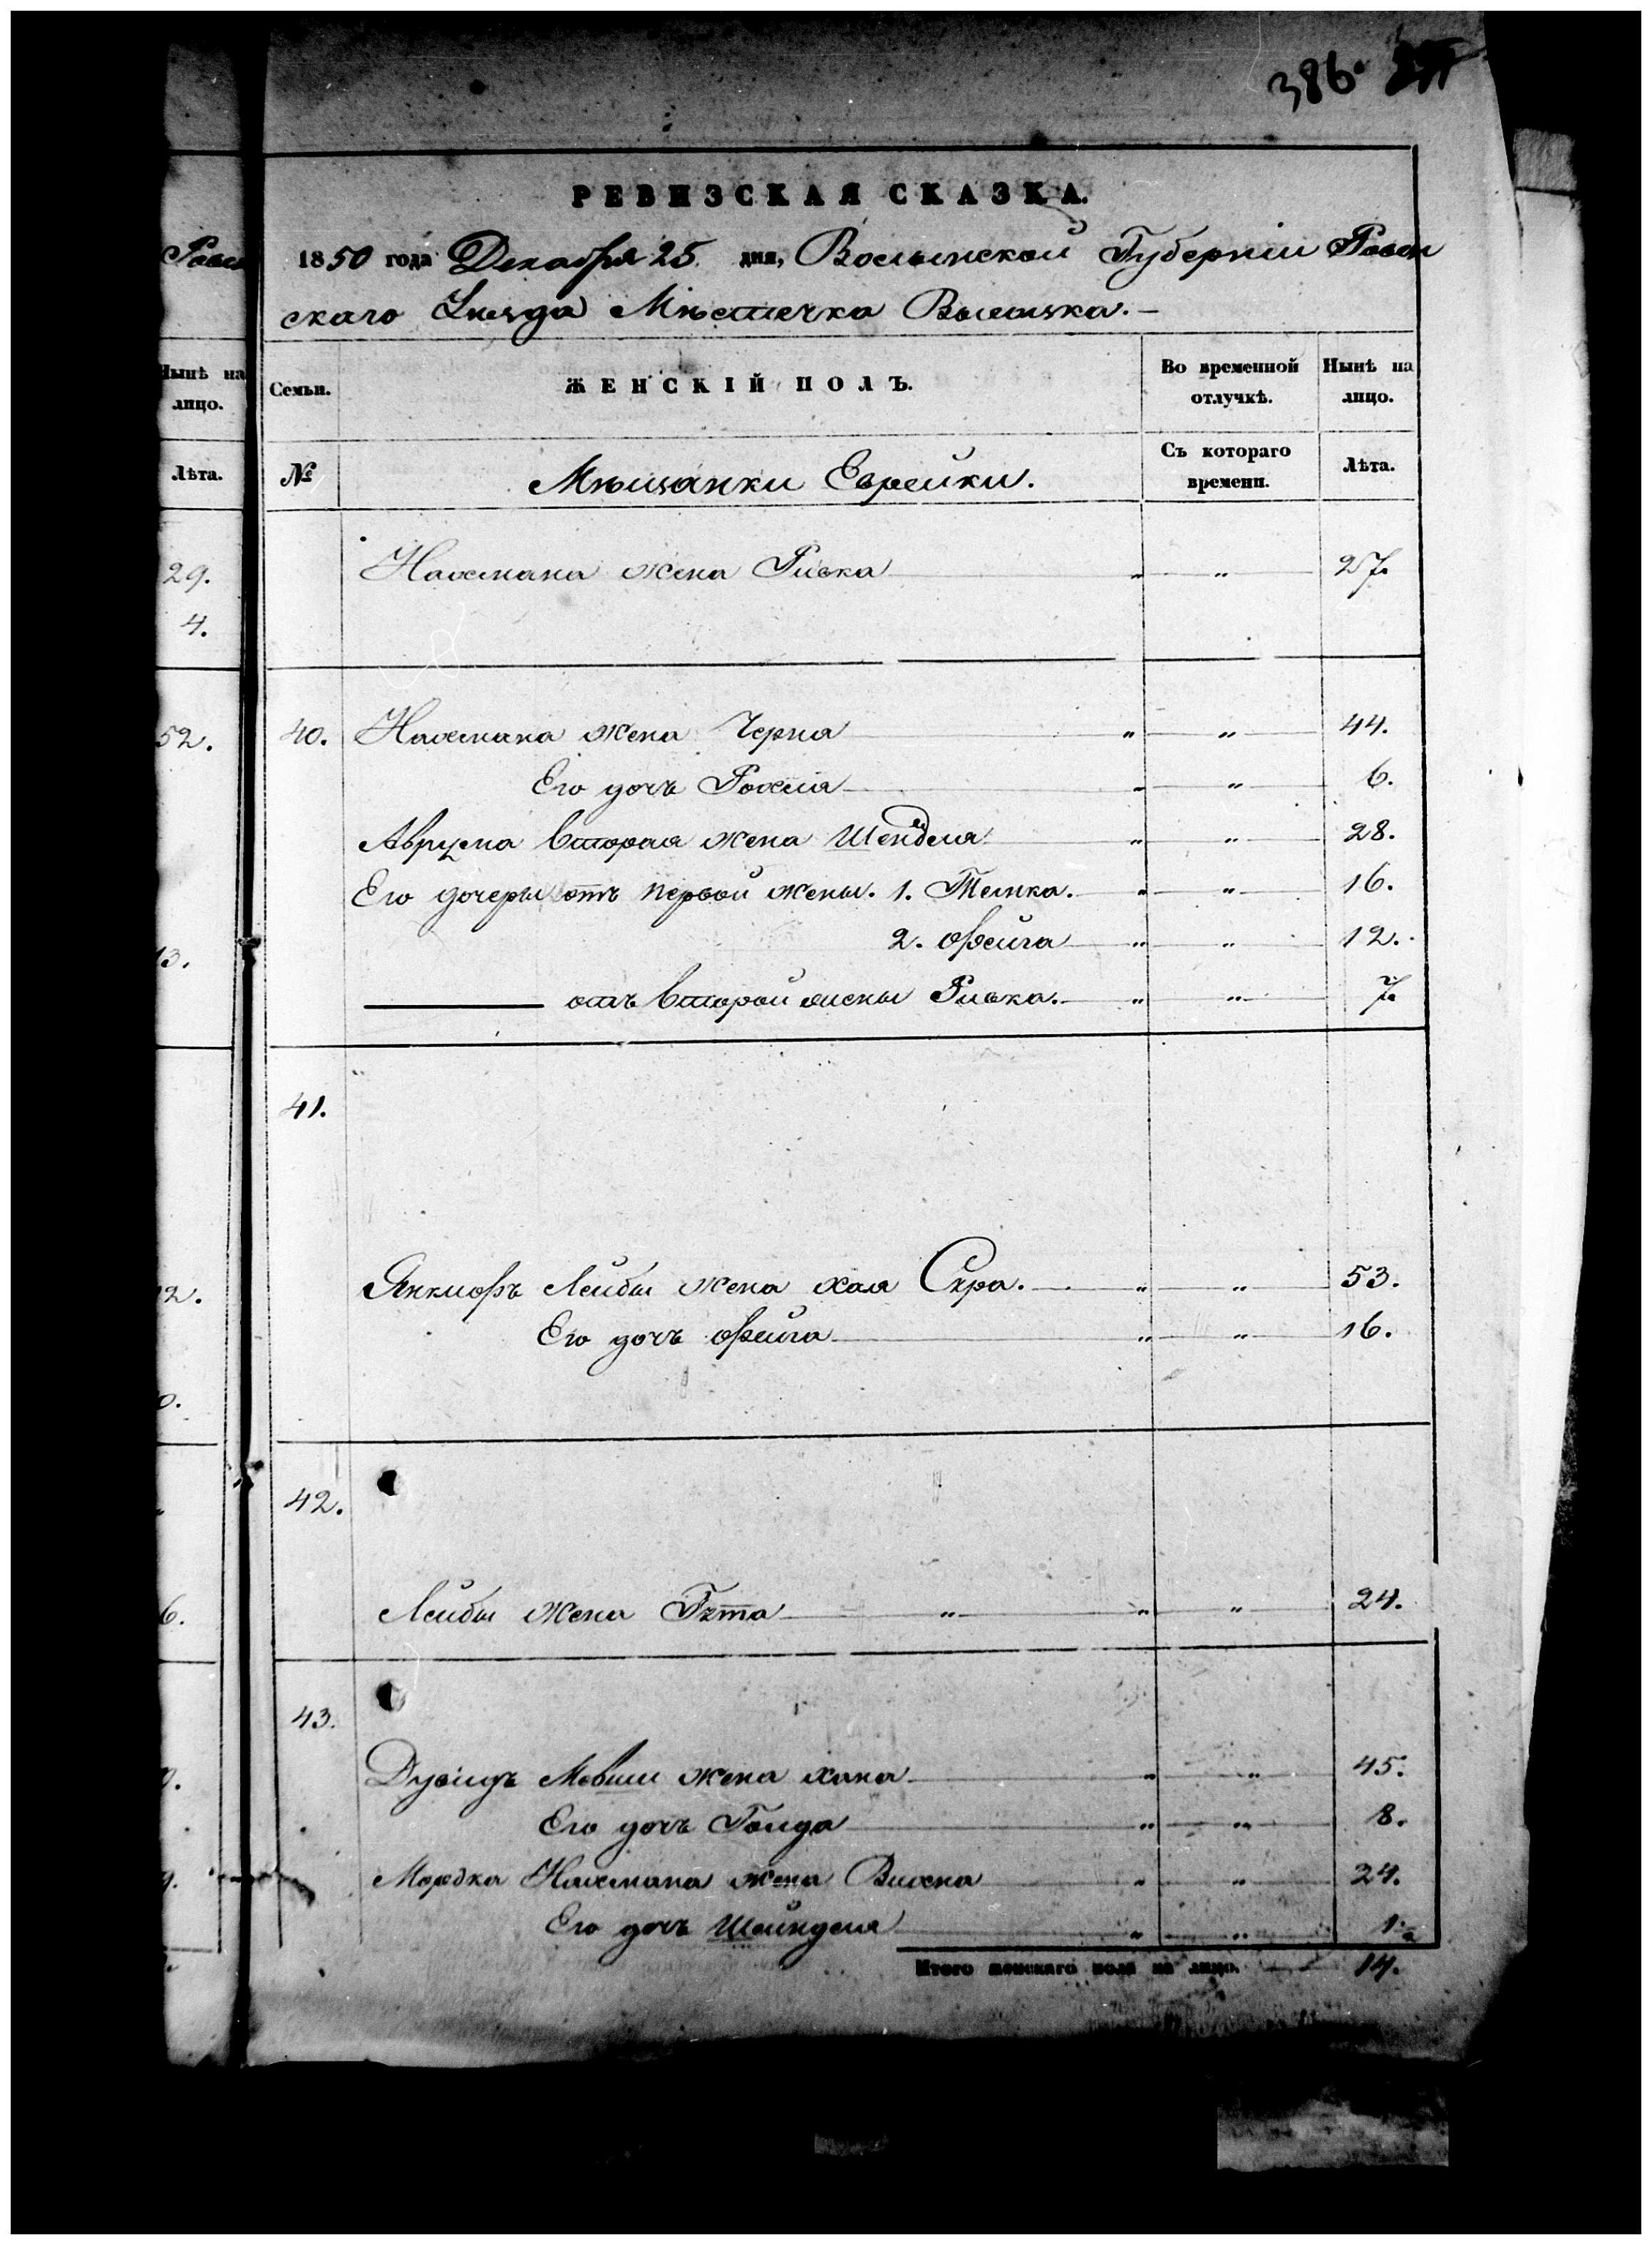 386.
РЕВИЗСКАЯ СКАЗКА.
1850 года Декабря 25 дня, Волынской Губерніи Ровен
скаго Уѣзда Мѣстечка Высоцка.
Семьи.
ЖЕНСКІЙ ПОЛЪ.
Во временной отлучкѣ.
Нынѣ на лицо.
№
Мѣщанки Еврейки.
Съ котораго времени.
Лѣта.
Нахмана жена Ривка " " 27.
40. Нахмана жена Черна " " 44.
Его дочь Рохля " " 6.
Аврума вторая жена Шейндля " " 28.
Его дочеры отъ первой жены. 1. Темка. " " 16.
2. Фейга " " 12.
отъ второй жены Ривка. " " 7.
41.
Янкіофъ Лейбы жена хая Сяра. " " 53.
Его дочь Фейга " " 16.
42.
Лейбы жена Гитта " " " 24.
43.
Дувидъ Мовши жена хана " " 45.
Его дочь Голда " " 8.
Мордка Нахмана жена Вихна " " 24.
Его дочь Шейндля " "
Итого женскаго пола на лицо. 14.
Ровен
Нынѣ на лицо.
Лѣта.
29.
4.
52.